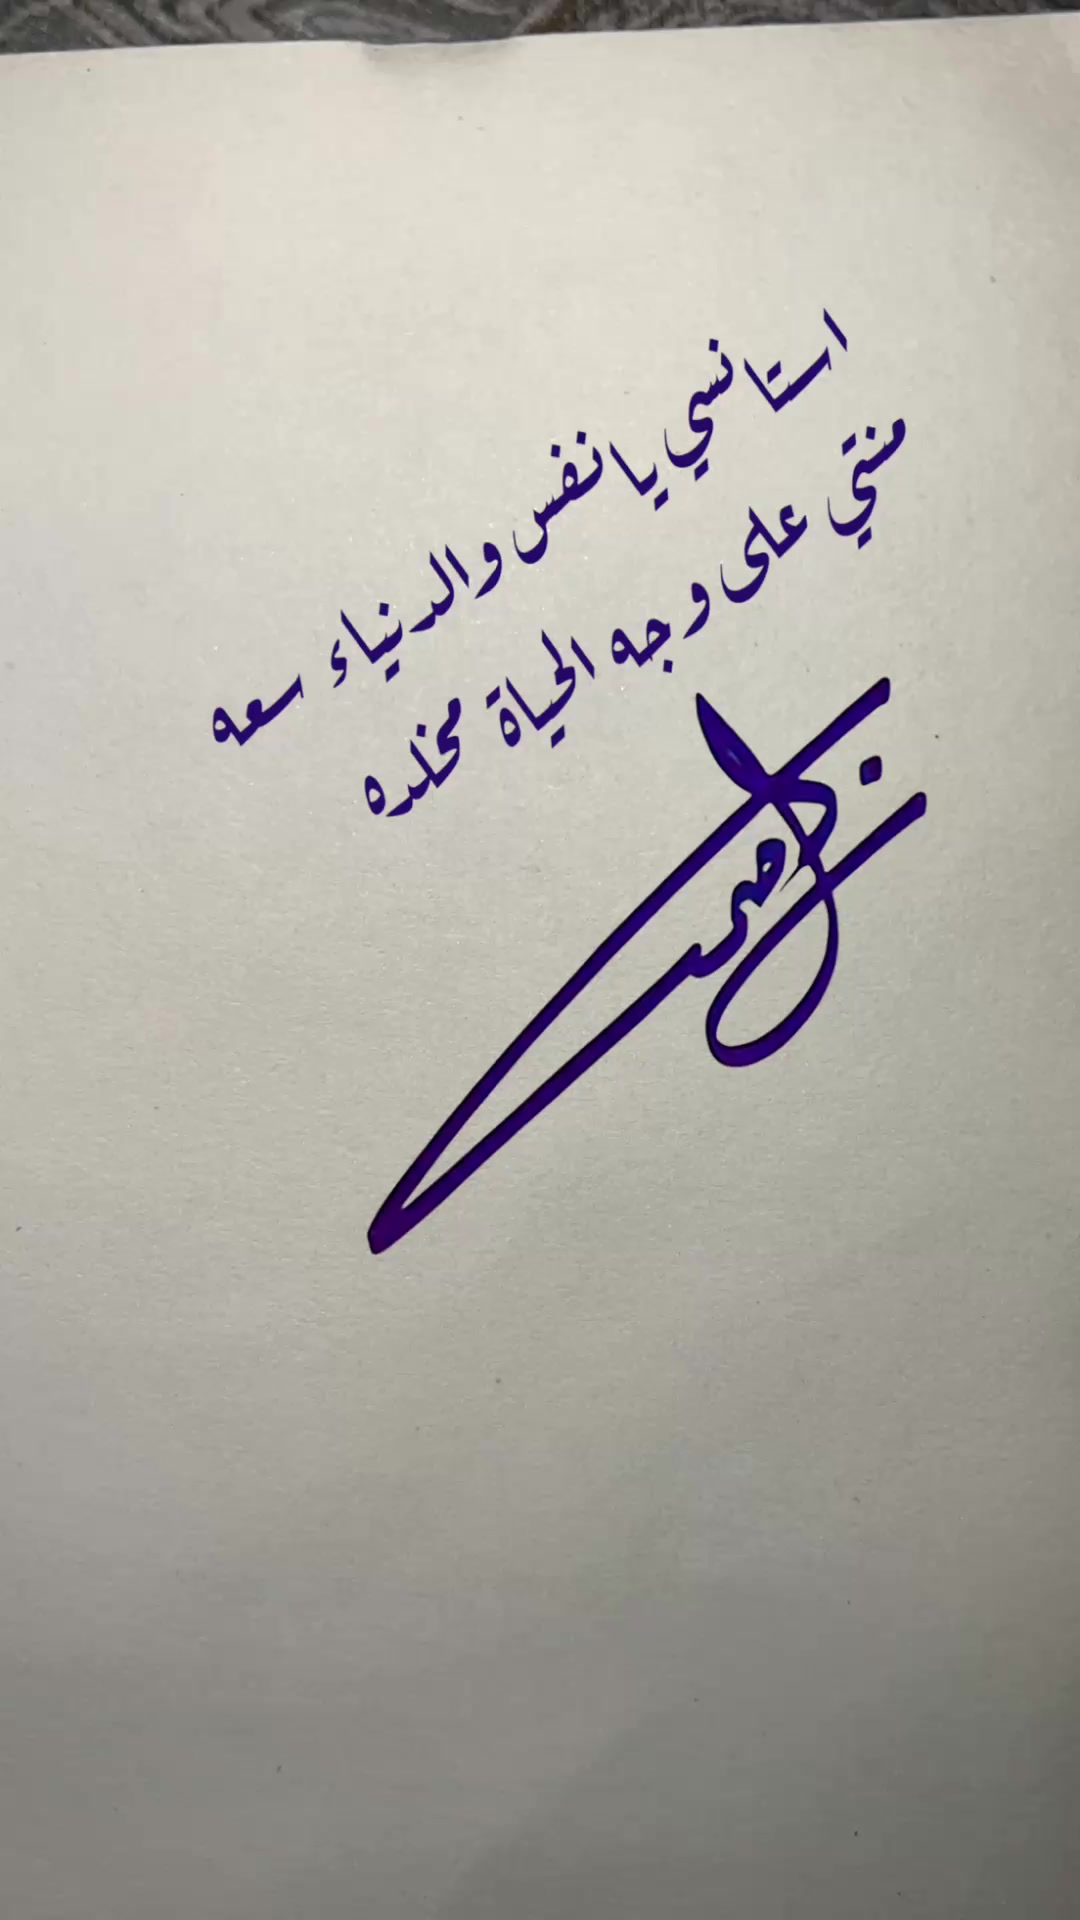 استانسي يا نفس والدنياء سعه
منتي على وجه الحياة مخلده